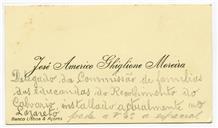 José Americo Ghiglione Moreira
Delegado da Commissão de familias
das Educandas do Recolhimento do
Calvario, installado actualmente no
Lazareto pede a V. Ex.ª a especial
Banco Lisboa & Açores